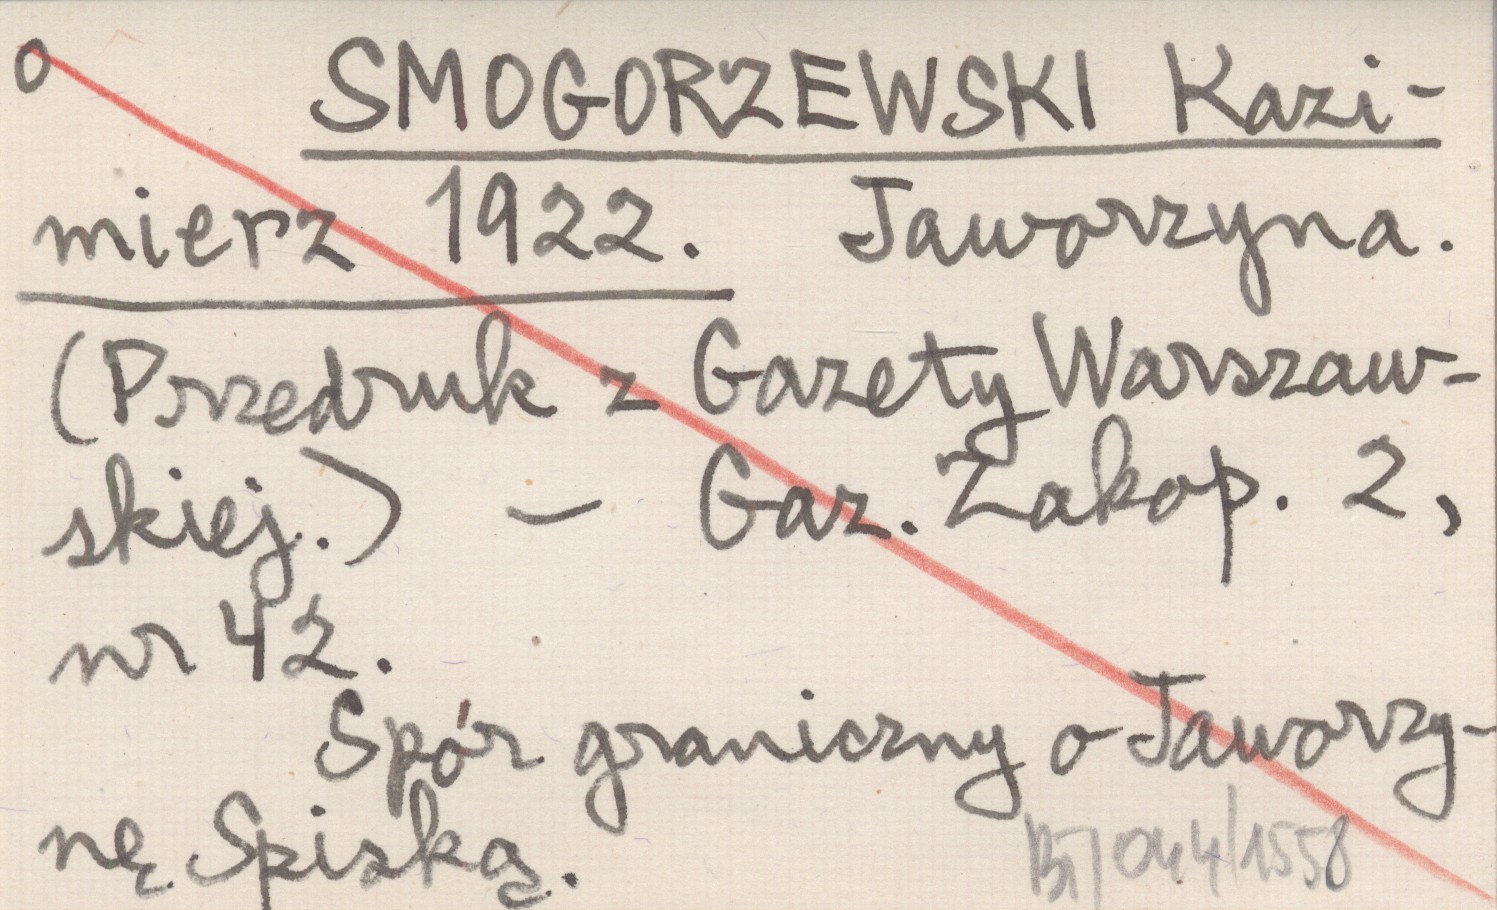 o SMOGORZEWSKI Kazi-
mierz 1922. Jaworzyna.
(Przedruk z Gazety Warszaw-
skiej.) – Gaz. Zakop. 2,
nr 42.
Spór graniczny o Jaworzy-
nę Spiską.
044/1558